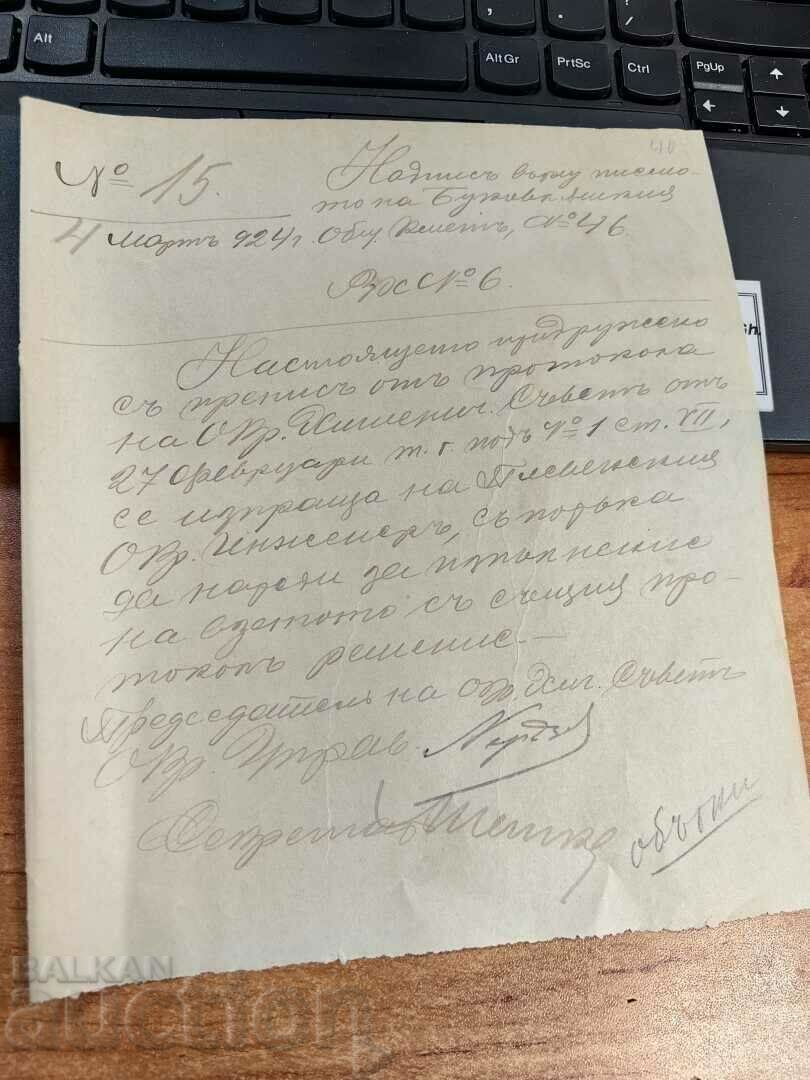 Alt
AltGr
PrtSc
Ctrl
PgUp
40
№ 15.
Надписъ върху писмо-
то на Буковлѫшкия
4 Мартъ 924 г. Общ. Кметъ, № 46.
Вх № 6.
Настоящето придружено
съ преписъ отъ протокола
на Окр. Хигиенич. Съветъ отъ
27 Февруари т. г. подъ № 1 ст. VII,
се изпраща на Плевенския
Окр. Инженеръ, съ
да нареди за изпълнение
на взетото съ същия про-
токолъ решение. —
Председатель на окр. Хиг. Съветъ
Окр. Управ.
Секретарь
BALKAN
auction